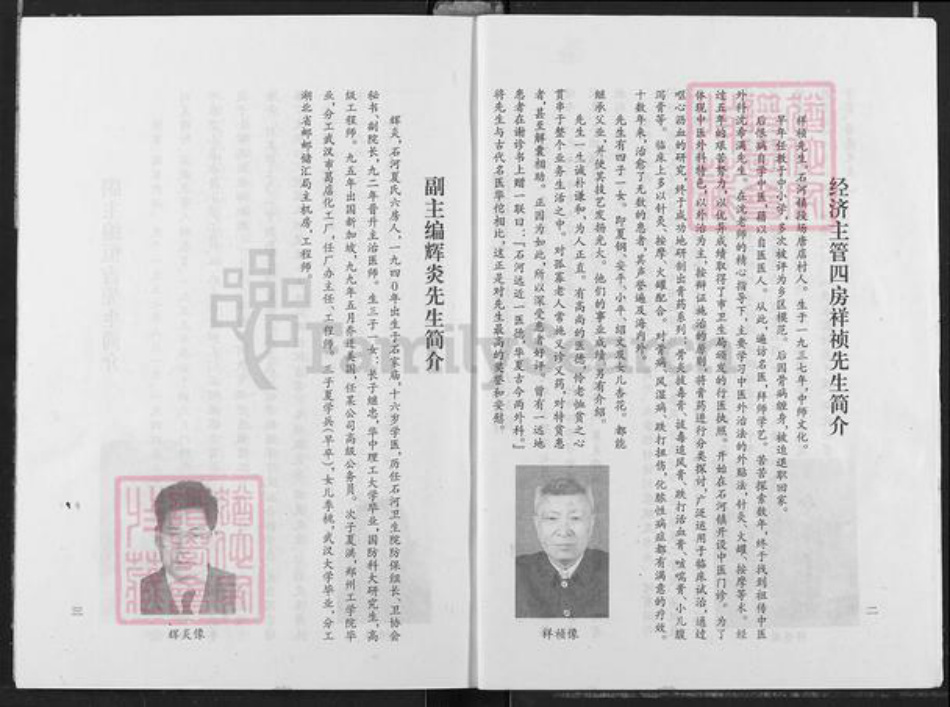 经济主管四房祥祯先生简介
祥祯先生。石河镇段场唐店村人。生于一九三七年，中师文化。
早年任教于中小学，多次被评为乡区模范。后因骨病缠身，被迫退职回家。
后恨病自学中医，藉以自医医人。从此，遍访名医，拜师学艺。苦苦探索数年，终于找到祖传中医
外科沈希满先生。在沈老师的精心指导下，主要学习中医外治法的外贴法，针灸、火罐、按摩等术。经
过五年的艰苦努力，以优异成绩取得了市卫生局颁发的行医执照。开始在石河镇开设中医门诊。为了
体现中医外科特色，以外治为主，按辩证施治的原则，将膏药进行分类探讨，广泛运用于临床试治，通过
呕心沥血的研究，终于成功地研制出膏药系列：骨炎拔毒膏、拔毒追风膏、跌打活血膏、咳喘膏、小儿腹
泻膏等。临床上多以针灸、按摩、火罐配合。对骨病、风湿病、跌打扭伤，化脓性病症都有满意的疗效。
十数年来，治愈了无数的患者，其声誉遍及海内外。
先生有四子一女。即夏钢、安平、小平、绍文及女儿杏花。都能
继承父业，并使其技艺发扬光大。他们的事业成绩另有介绍。
先生一生诚朴谦和，为人正直。有高尚的医德，怜老恤贫之心
贯串于整个业务生活之中。对孤寡老人常施义诊义药，对特贫患
者，甚至解囊相助。正因为如此，所以深受患者好评。曾有一远地
患者在谢诊书上赠一联曰：『石河远近一医师，华夏古今两外科。』
将先生与古代名医华佗相比，这正是对先生最高的奖誉和安慰。
祥祯像
二
副主编辉炎先生简介
辉炎，石河夏氏六房人，一九四0年出生于石家庙。十六岁学医，历任石河卫生院防保组长、卫协会
秘书、副院长，九二年晋升主治医师。生三子一女：长子继忠，华中理工大学毕业，国防科大研究生，高
级工程师。九五年出国新加坡，九九年五月乔迁美国，任某公司高级公务员。次子夏洪，郑州工学院毕
业，分工武汉市葛店化工厂，任厂办主任、工程师。三子夏学兵(早卒)，女儿季桃，武汉大学毕业，分工
湖北省邮邮储汇局主机房，工程师。
辉炎像
三